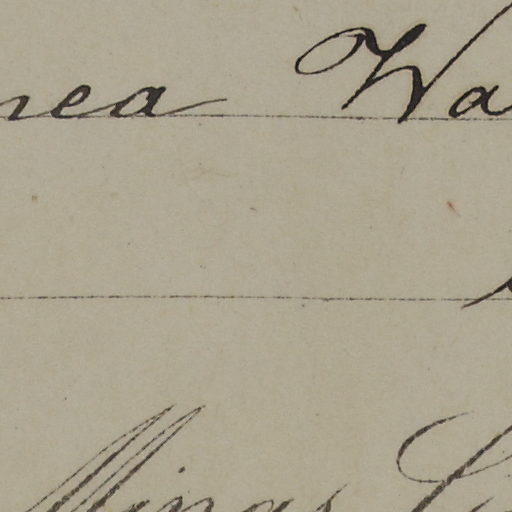 nea Wa
Minas